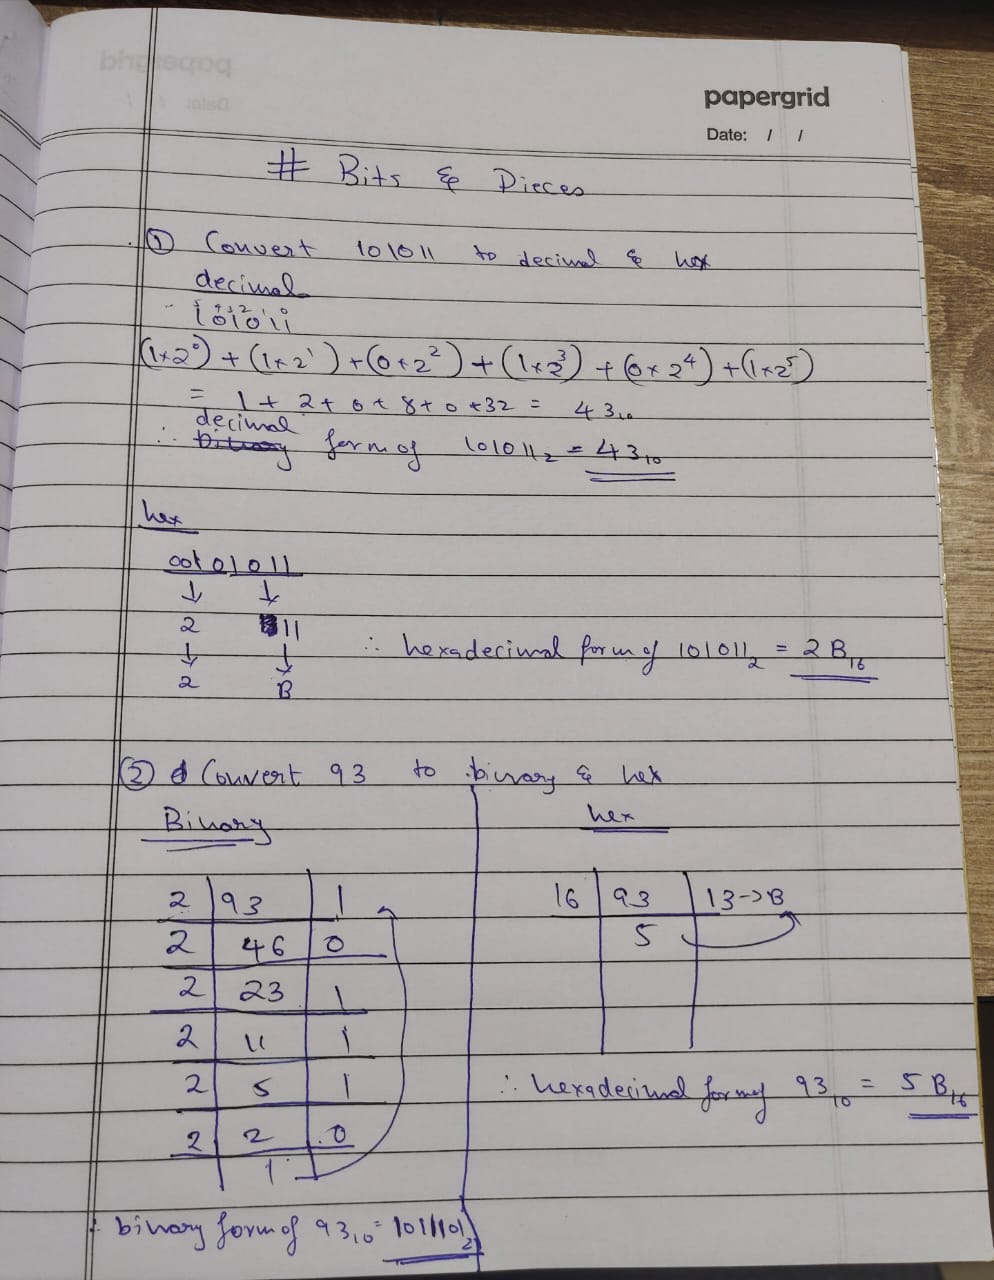 papergrid
Date: / /
# Bits & Pieces
① Convert 101011 to decimal & hex
decimal
5 4 3 2 1 0
101011
(1×2⁰) + (1×2¹) + (0×2²) + (1×2³) + (0×2⁴) + (1×2⁵)
= 1 + 2 + 0 + 8 + 0 + 32 = 43₁₀
decimal
∴ binary form of 101011₂ = 43₁₀
hex
00101011
↓ ↓
2 11
↓ ↓
2 B
∴ hexadecimal form of 101011₂ = 2B₁₆
② Convert 93 to binary & hex
Binary
2 | 93 | 1
2 | 46 | 0
2 | 23 | 1
2 | 11 | 1
2 | 5 | 1
2 | 2 | 0
1
∴ binary form of 93₁₀ = 1011101₂
hex
16 | 93 | 13->B
5
∴ hexadecimal form of 93₁₀ = 5B₁₆